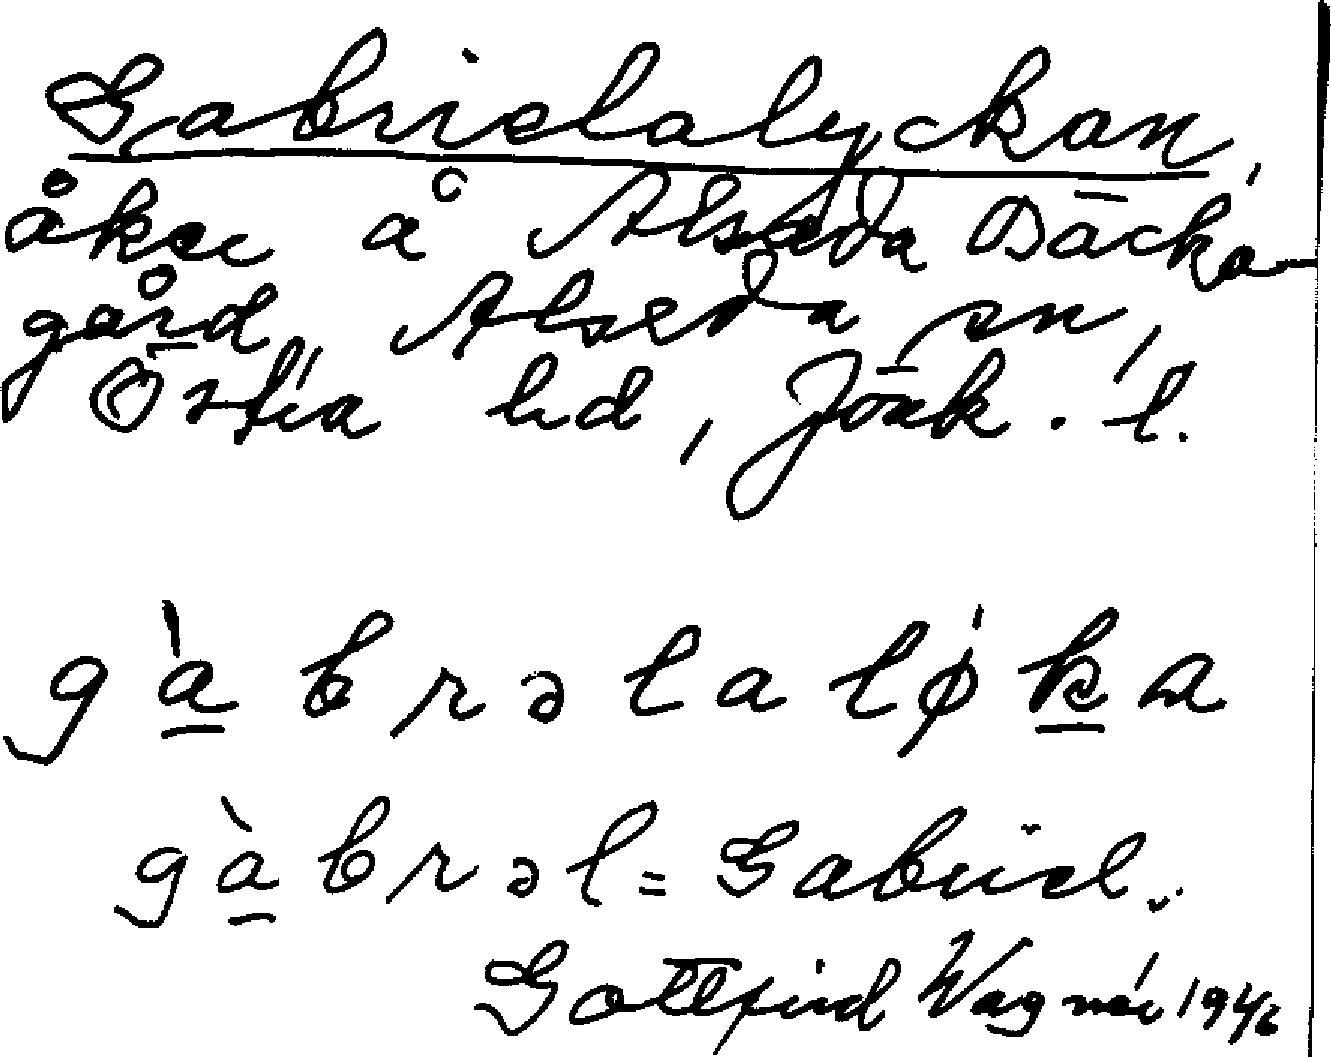 Gabrielalyckan,
åker å Alseda Backa-
gård, Alseda sn,
Östra hd, Jönk. l.
gàbrəlaløka
gàbrəl = Gabriel.
Gottfrid Wagnér 1946